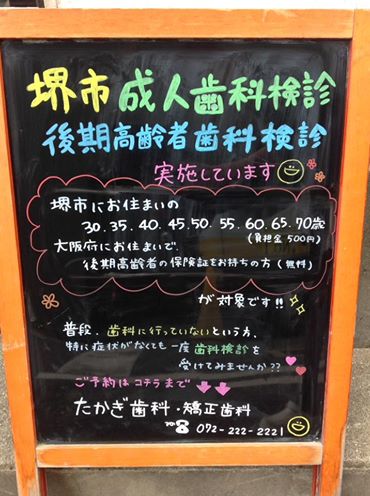 堺市成人歯科検診
後期高齢者歯科検診
実施しています
堺市にお住まいの
30.35.40.45.50.55.60.65.70歳
(負担金500円)
大阪府にお住まいで、
後期高齢者の保険証をお持ちの方(無料)
が対象です!!
普段、歯科に行っていないという方、
特に症状がなくても一度歯科検診を
受けてみませんか??
ご予約はコチラまで
たかぎ歯科・矯正歯科
072-222-2221